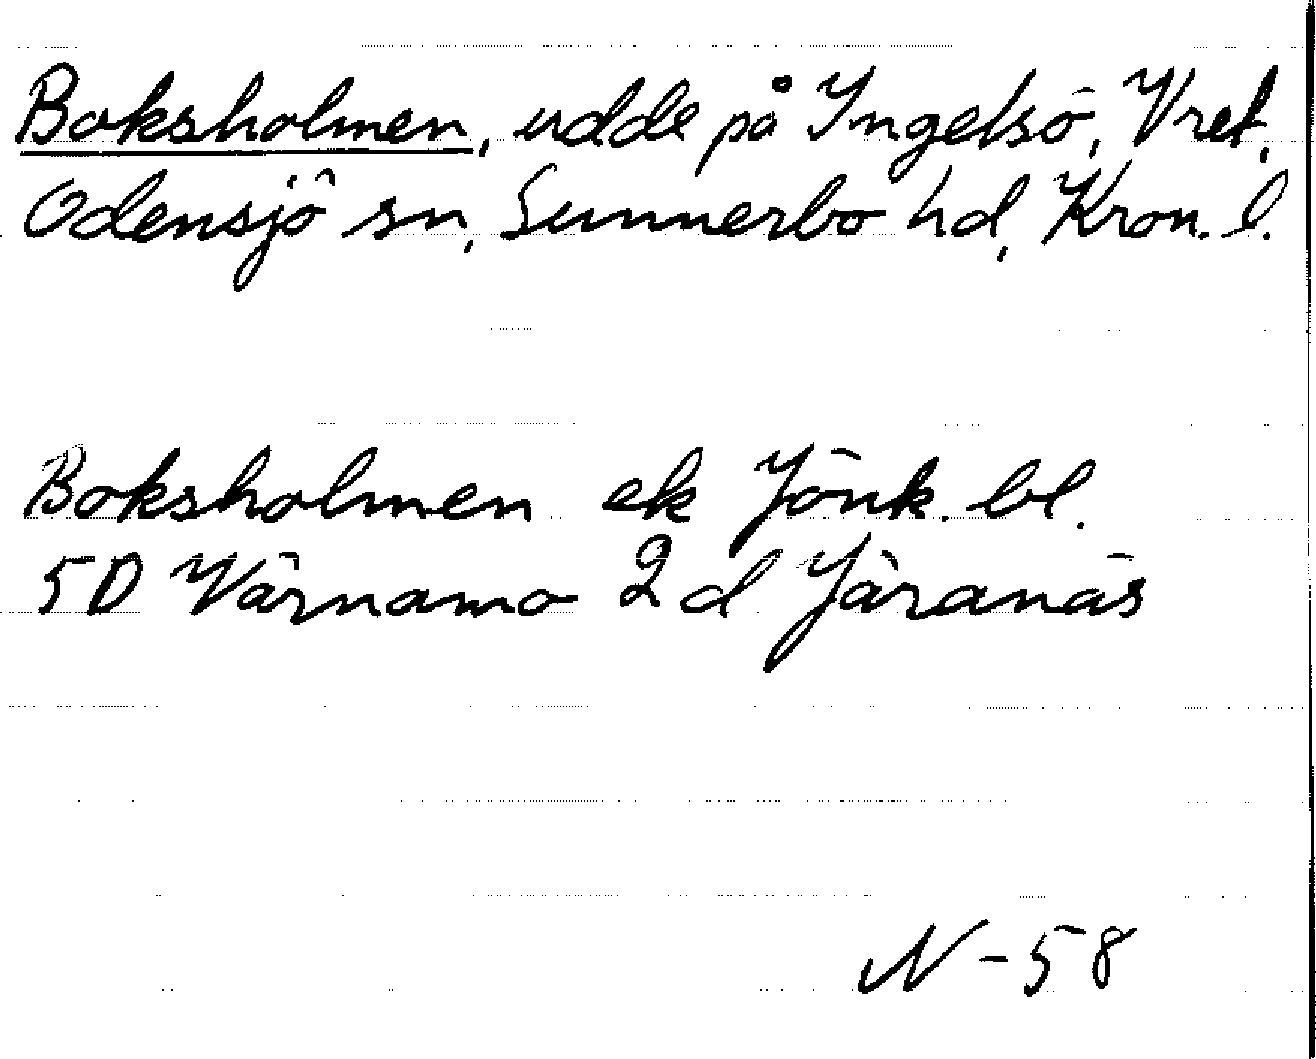 Boksholmen, udde på Ingelsö, Vret,
Odensjö sn, Sunnerbo hd, Kron. l.
Boksholmen ek Jönk. bl.
5D Värnamo 2d Järanäs
N-58